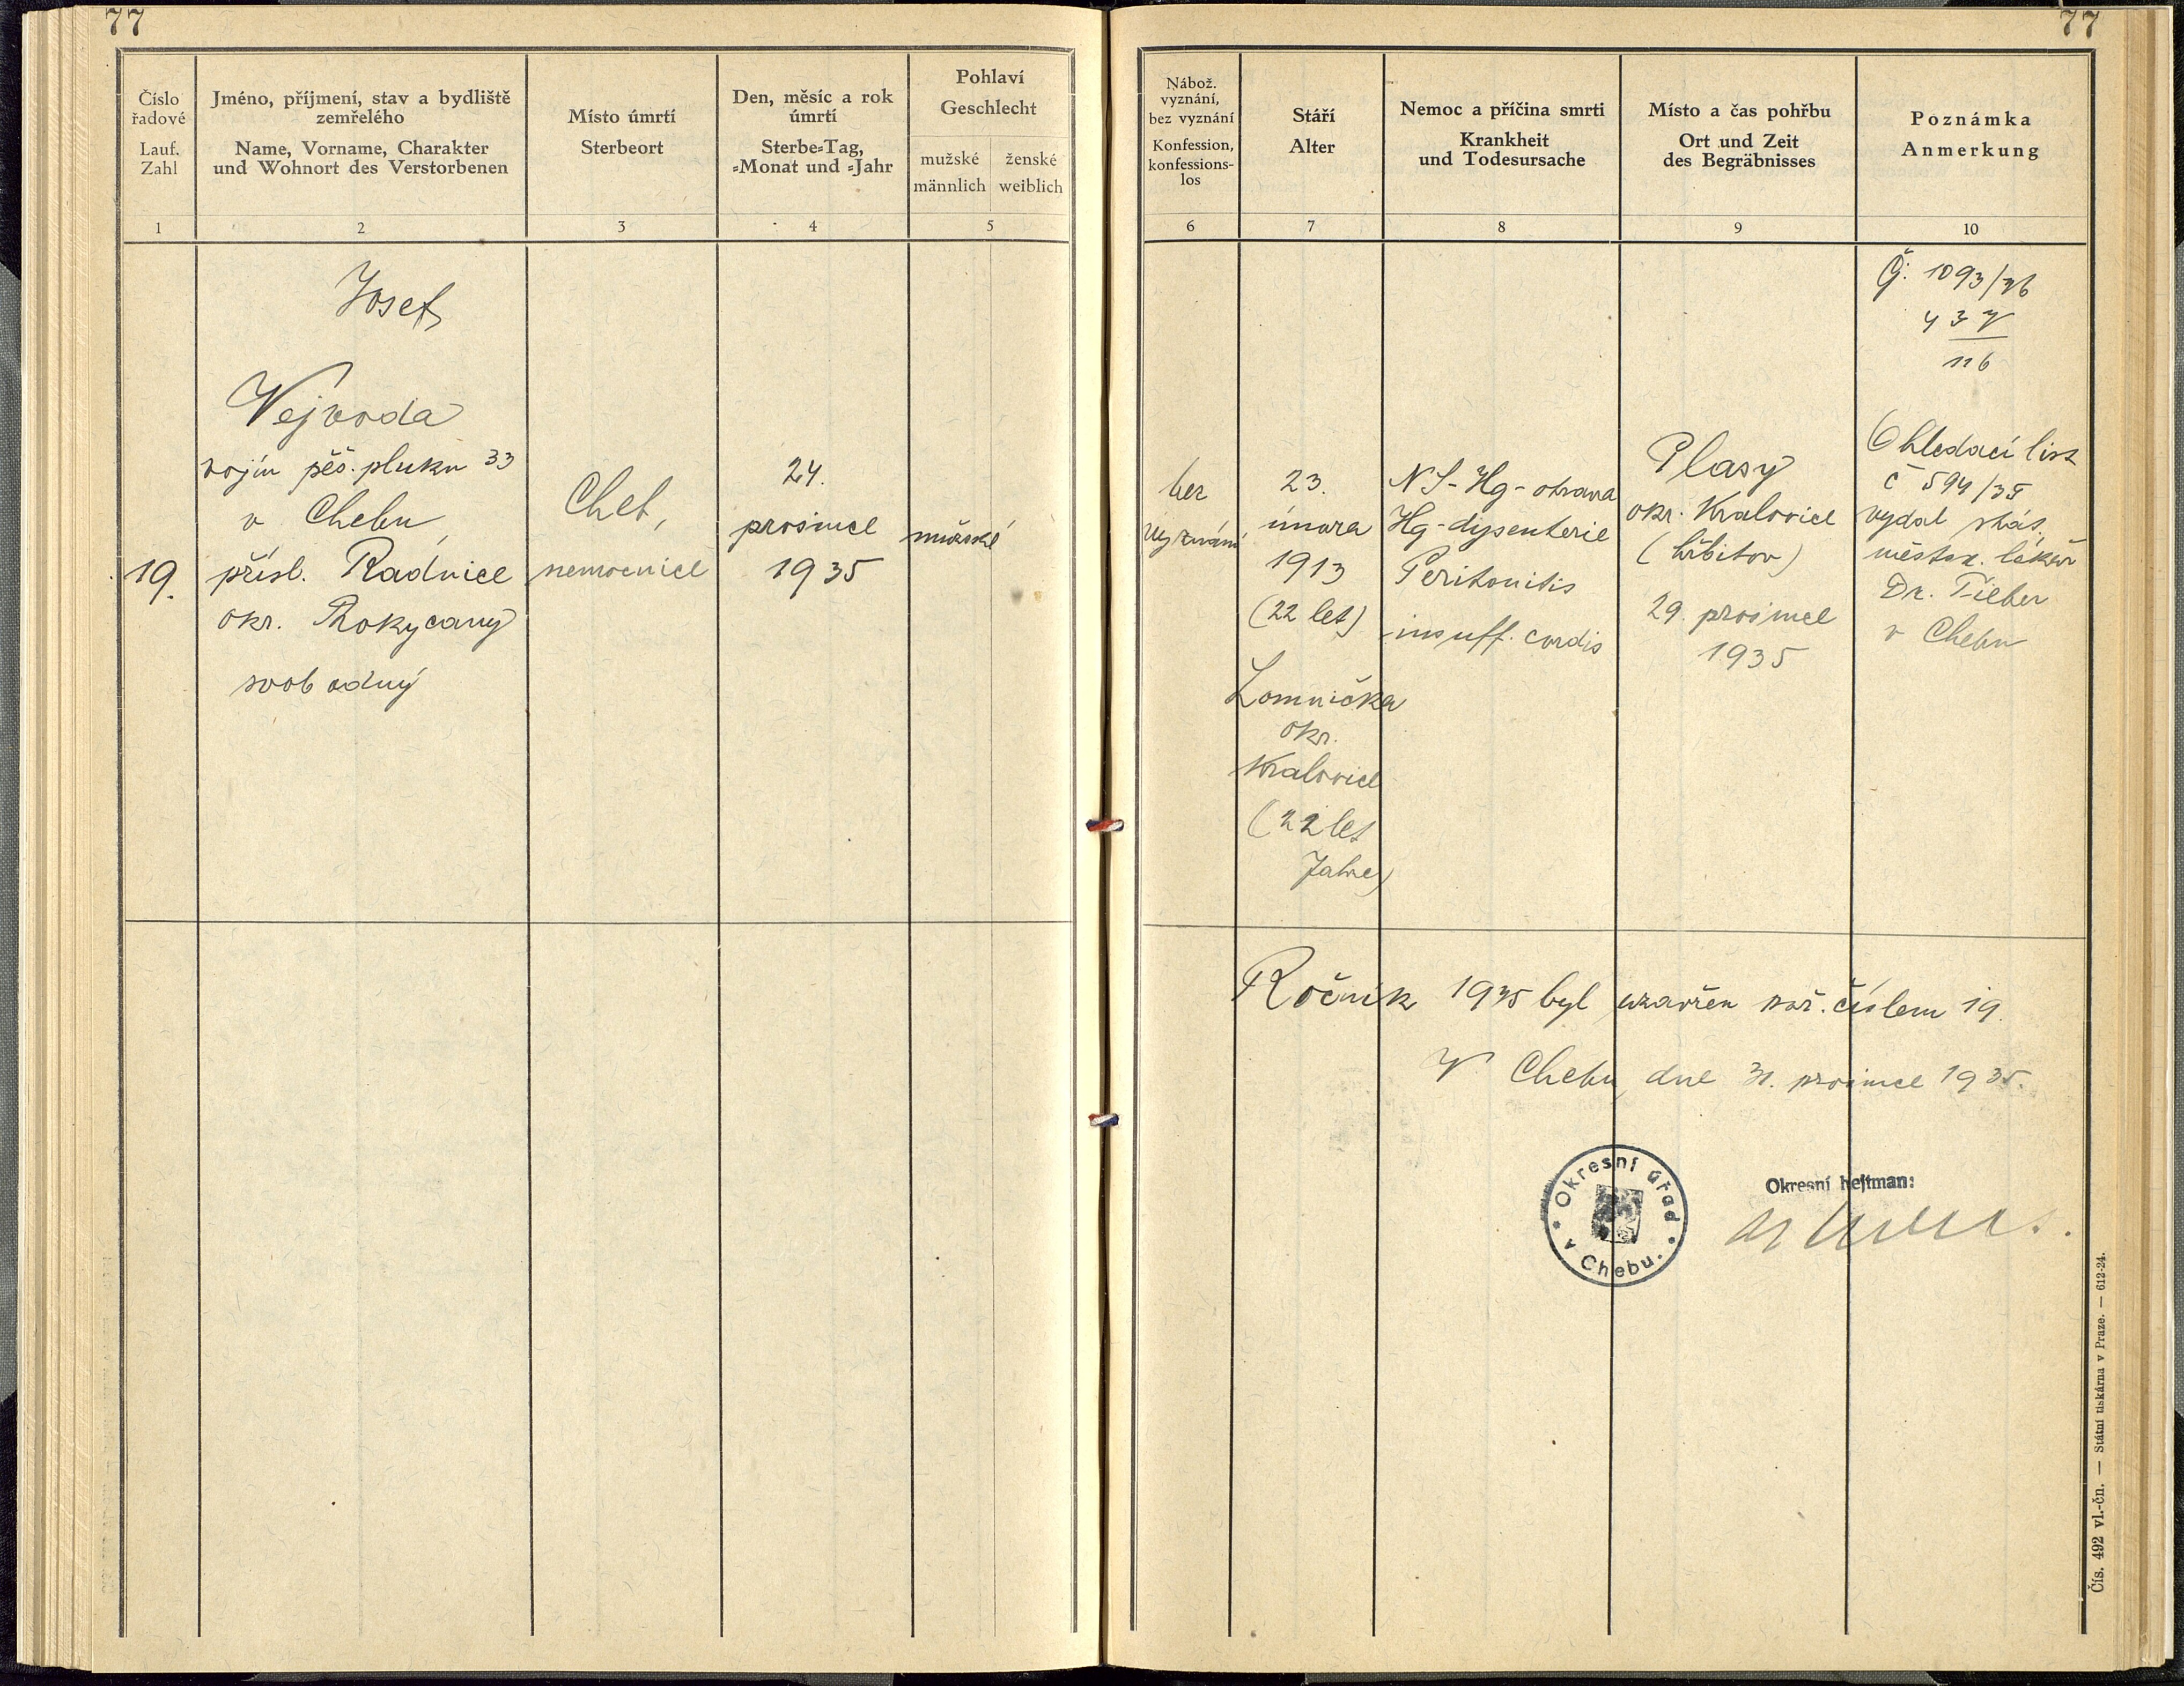 77
77
Číslo
řadové
Lauf.
Zahl
Jméno, příjmení, stav a bydliště
zemřelého
Name, Vorname, Charakter
und Wohnort des Verstorbenen
Místo úmrtí
Sterbeort
Den, měsíc a rok
úmrtí
Sterbe=Tag,
=Monat und =Jahr
Pohlaví
Geschlecht
mužské
männlich
ženské
weiblich
Nábož.
vyznání,
bez vyznání
Konfession,
konfessions-
los
Stáří
Alter
Nemoc a příčina smrti
Krankheit
und Todesursache
Místo a čas pohřbu
Ort und Zeit
des Begräbnisses
Poznámka
Anmerkung
1
2
3
4
5
6
7
8
9
10
19.
Josef
Vejvoda
vojín pěš. pluku 33
v Chebu,
přísl. Radnice
okr. Rokycany
svobodný
Cheb,
nemocnice
24.
prosince
1935
mužské
bez
vyznání
23.
února
1913
(22 let)
Lomnička
okr.
Kralovice
(22 let
Jahre)
NS-Hg-otrava
Hg-dysenterie
Peritonitis
insuff. cordis
Plasy
okr. Kralovice
(hřbitov)
29. prosince
1935
Čj. 1093/36
43 V
116
Ohledací list
č 594/35
vydal stát.
městsk. lékař
Dr. Fieber
v Chebu
Ročník 1935 byl uzavřen poř. číslem 19.
V Chebu, dne 31. prosince 1935.
Okresní úřad
v Chebu.
Okresní hejtman:
Čís. 492 vl.-čn. — Státní tiskárna v Praze. — 612-24.